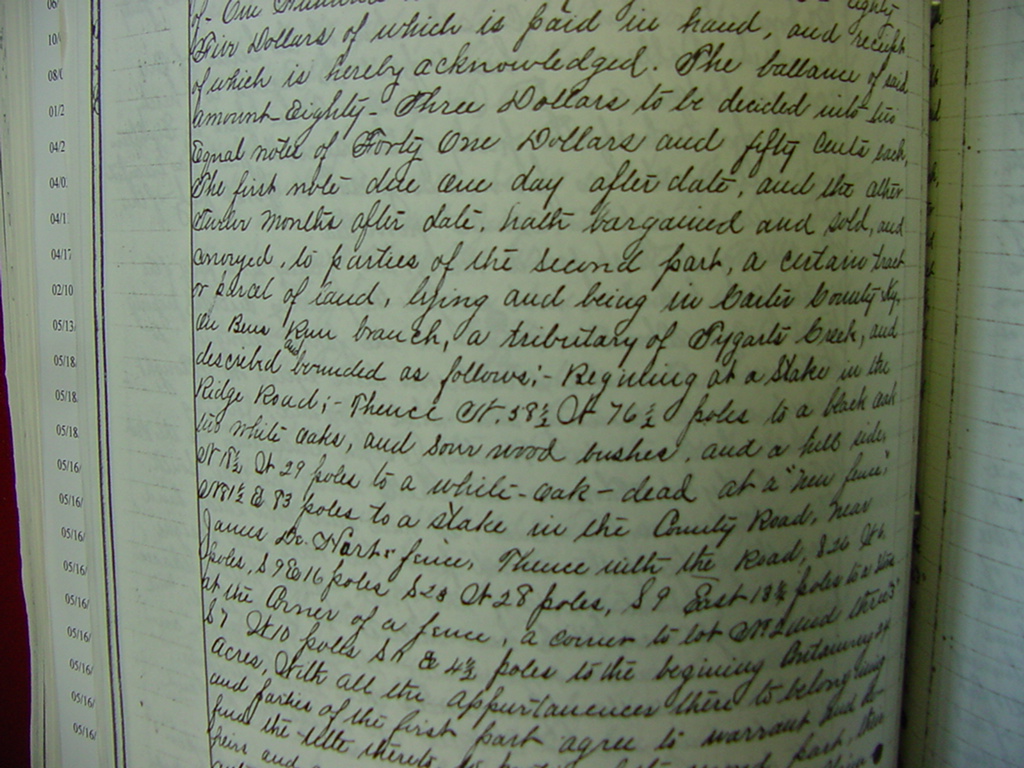 of - One
Five Dollars of which is paid in hand, and receipt
of which is hereby acknowledged. The ballance of said
amount - Eighty - Three Dollars to be decided into two
Equal notes of Forty One Dollars and fifty cents each,
The first note due one day after date, and the other
twelve months after date, hath bargained and sold, and
conveyed, to parties of the second part, a certain tract
or parcel of land, lying and being in Carter County Ky,
On Run branch, a tributary of Tygarts Creek, and
described and bounded as follows; - Begining at a Stake in the
Ridge Road; - Thence N. 58½ W 76½ poles to a black oak
two white oaks, and sour wood bushes, and a hill side,
N 18½ W 29 poles to a white - oak - dead at a "new fence",
N 81½ E 83 poles to a stake in the County Road, near
James Harts fence, Thence with the Road, S 26 W 6
poles, S 9 E 16 poles S 23 W 28 poles, S 9 East 18¾ poles to a
at the Corner of a fence, a corner to lot No 2 and three "3"
S 7 W 10 polls S 11 E 4½ poles to the begining Containing 24
acres, With all the appurtanences there to belonging
and parties of the first part agree to warrant and de-
fend the title thereto part, their
heirs and